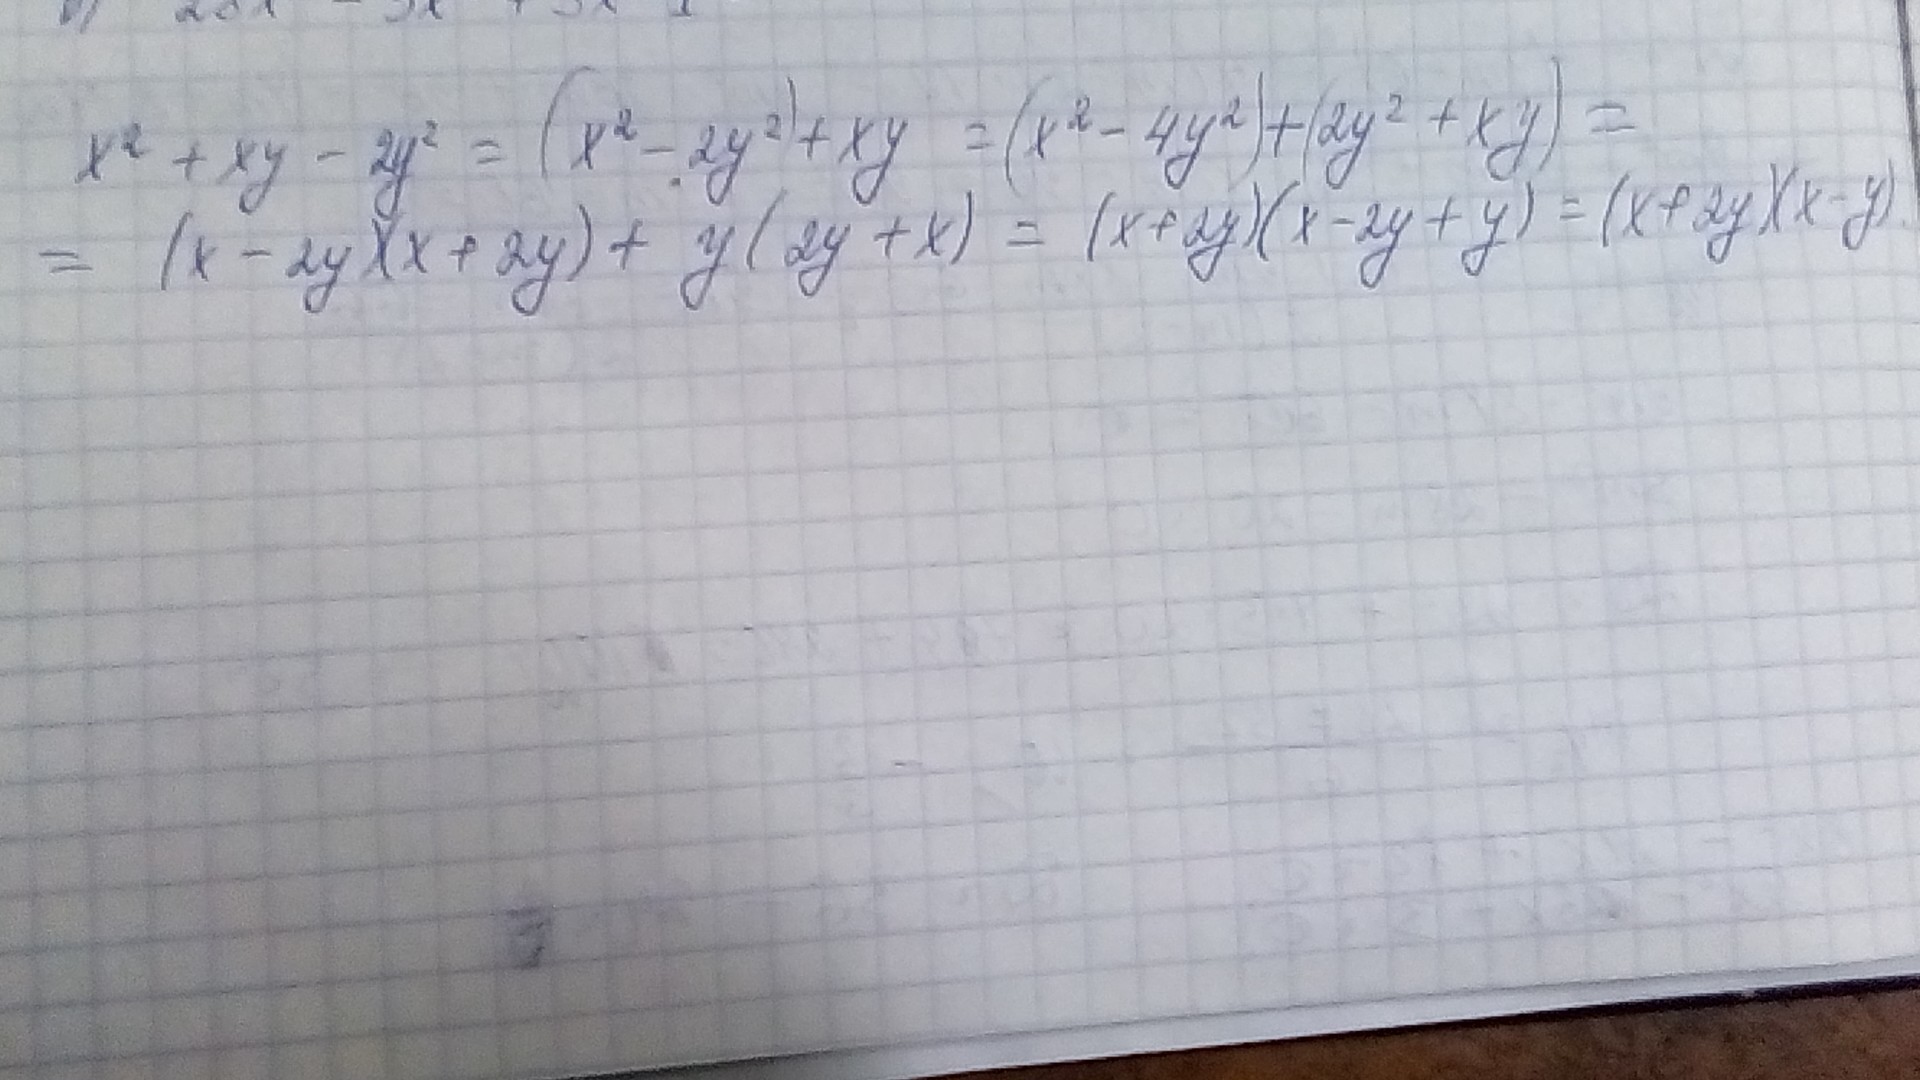 x² + xy - 2y² = (x² - 2y²) + xy = (x² - 4y²) + (2y² + xy) =
= (x - 2y)(x + 2y) + y(2y + x) = (x + 2y)(x - 2y + y) = (x + 2y)(x - y).